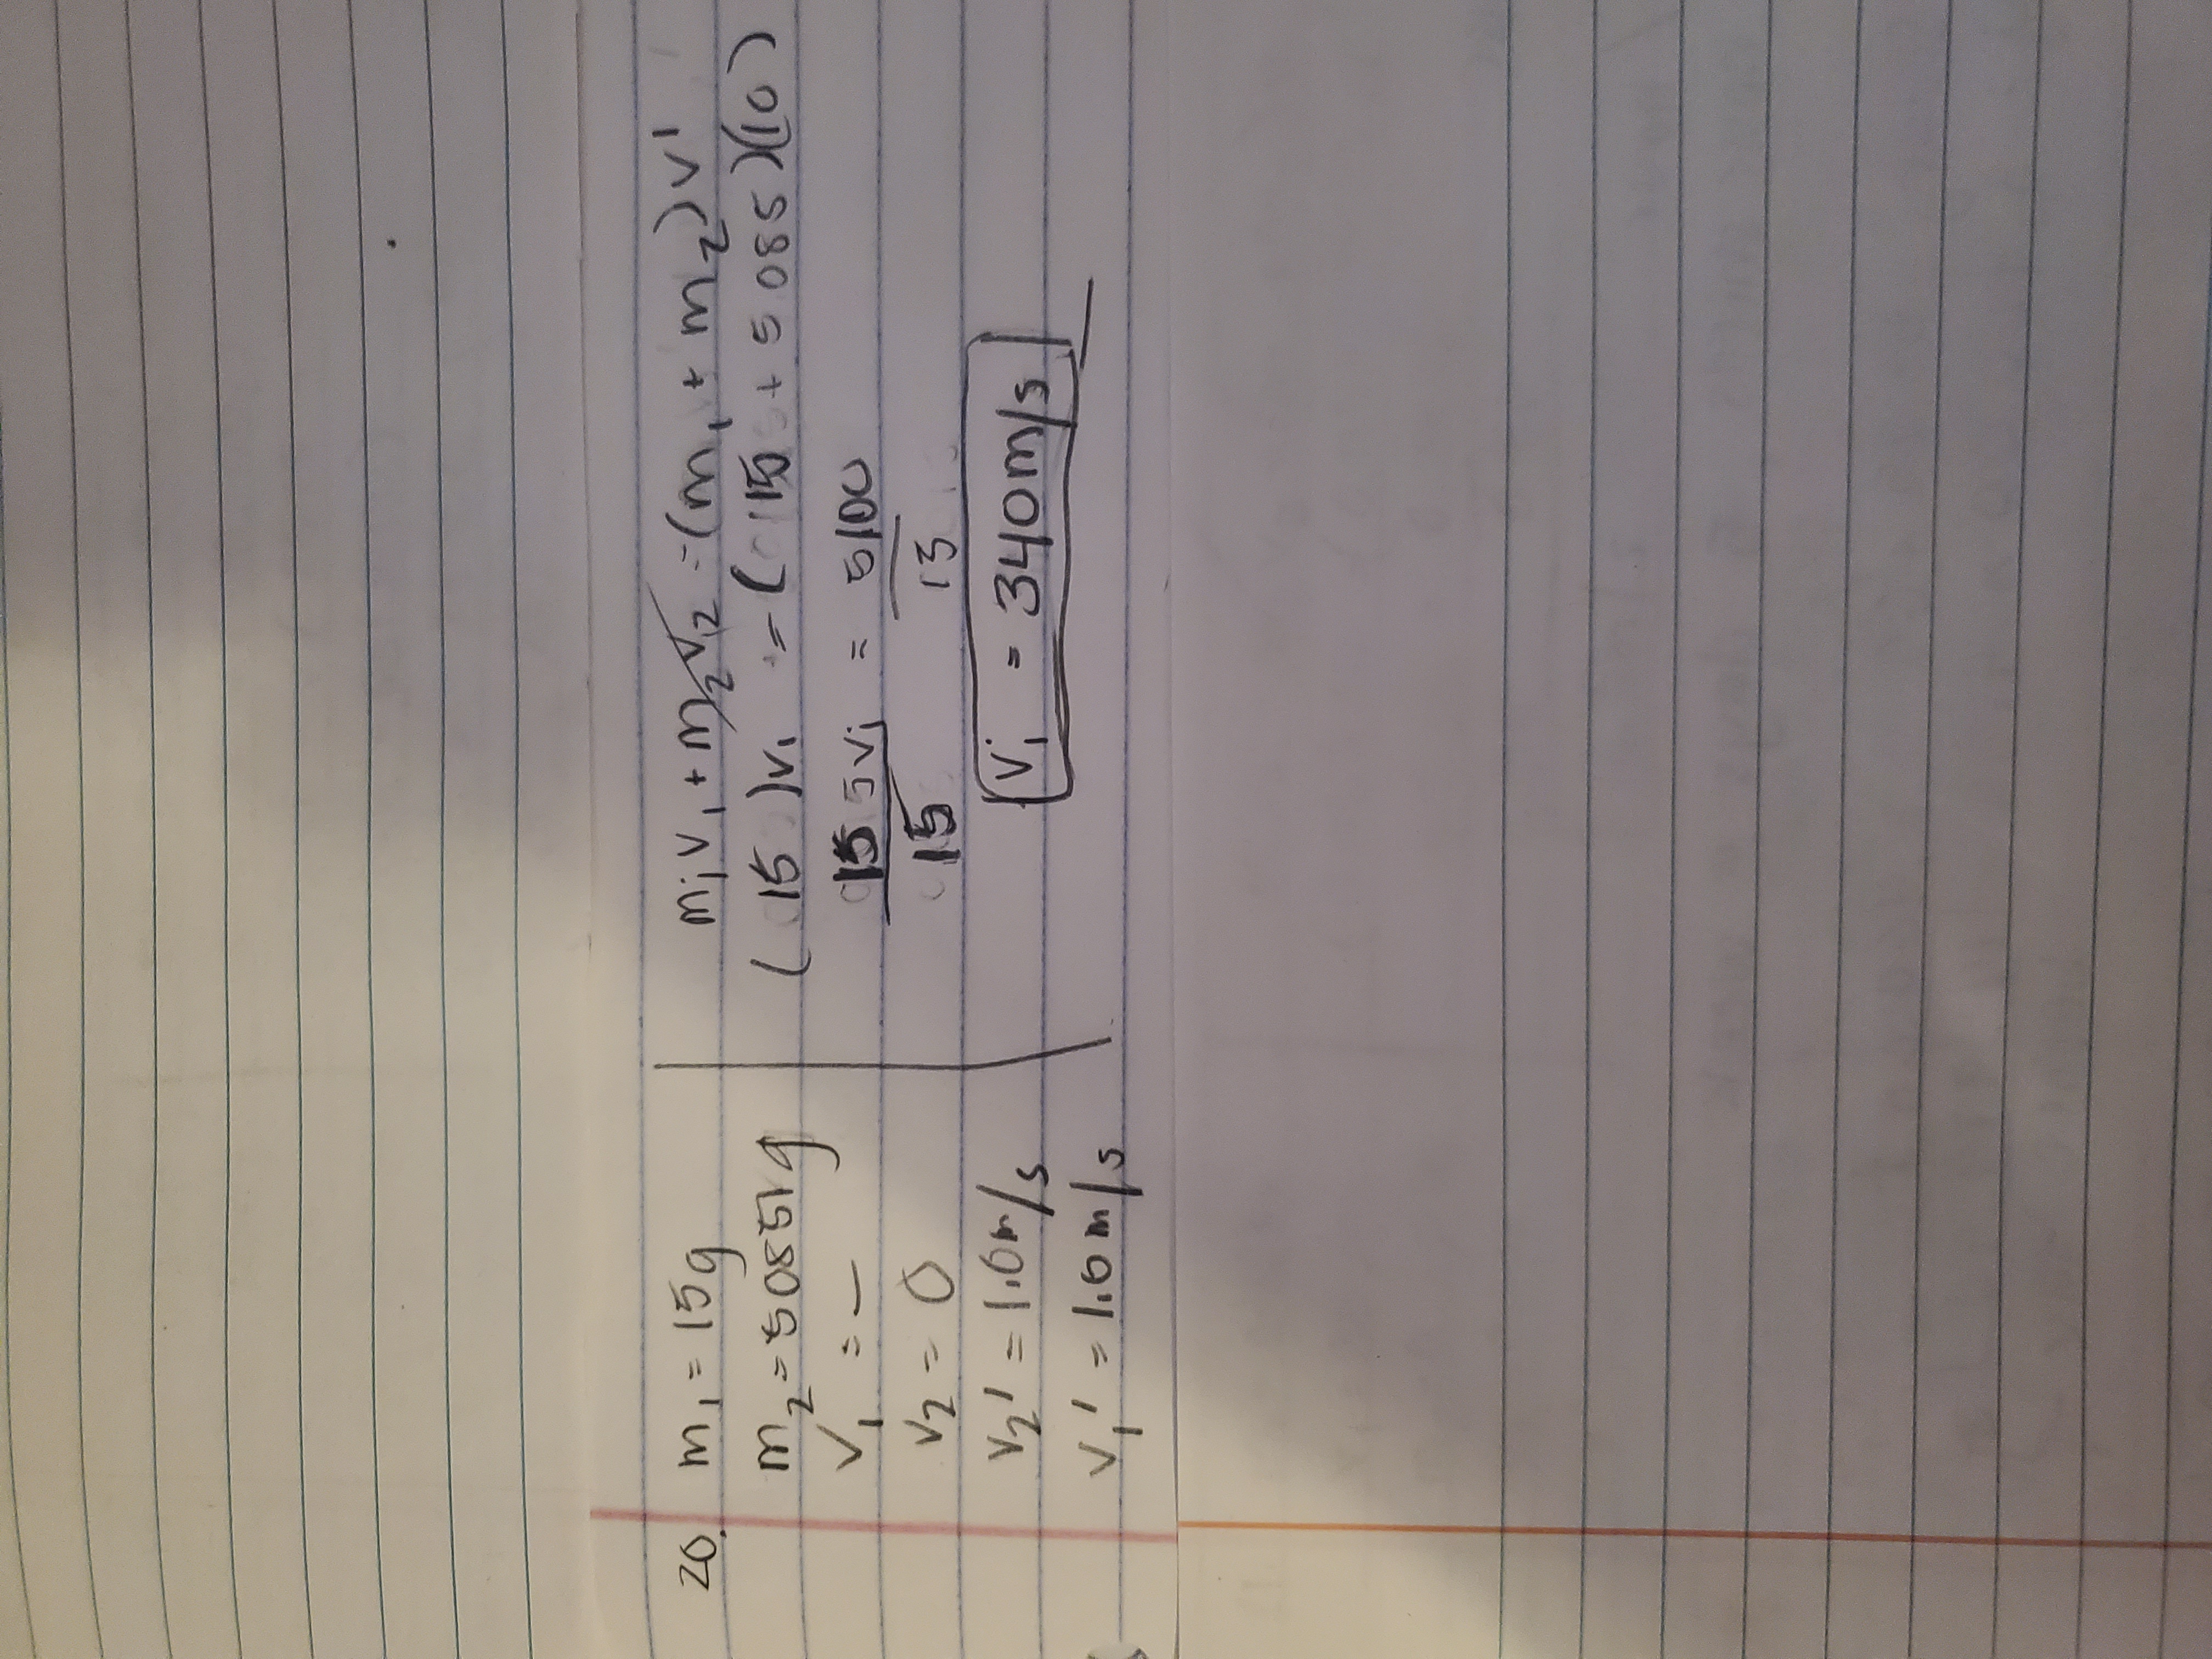 20. m₁ = 15g
m₂ = 5085g
v₁ = —
v₂ = 0
v₂' = 1.0m/s
v₁' = 1.0m/s
m₁v₁ + m₂v₂ = (m₁ + m₂)v'
(15)v₁ = (15 + 5085)(1.0)
15v₁ = 5100
15 15
v₁ = 340m/s